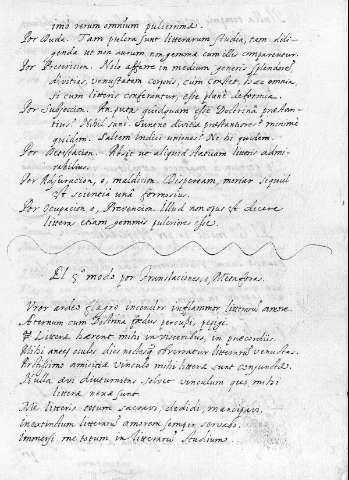 imò rerum omnium pulcerrima.
Por Duda. Tam pulcra sunt litterarum studia, tam dili-
genda ut non aurum non gemma cum illis comparentur.
Por Pretericion. Nolo afferre in medium generis splendorē
divitias, venustatem corporis, cum constet, haec omnia
si cum litteris conferantur, esse planè deformia.
Por Subjecion. An putas quidquam esse Doctrinâ praestan-
tius? Nihil sanè. Sunene divitiae praestantiores? minimè
quidem. Saltem Indici uniones? Ne hi quidem.
Por Detestacion. Absit ut aliquid statuam litteris admi-
rabilius.
Por Adjuracion, o, maldicion. Dispeream, moriar siquid
est scienciâ unâ formosius.
Por Ocupacion, o, Prevencion. Illud non opus est dicere
litteras etiam gemmis pulcriores esse.
El 5º modo por translaciones, o, Metafora.
Vror ardeo flagro incendor inflammor litterarū amore.
Aeternum cum Doctrina foedus percussi, pepigi.
Litterae haerent mihi in visceribus, in praecordiis.
Mihi ante oculos dies noctesq obversatur litterarū venustas.
Arctissimo amicitiae vinculo mihi litterae sunt conjunctae.
Nulla aevi diuturnitas solvet vinculum quo mihi
litterae nexae sunt.
Me litteris totum sacravi, dedidi, mancipavi.
Inextinctum litterarū amorem semper servabo.
Immersi me totum in litterarū studium.